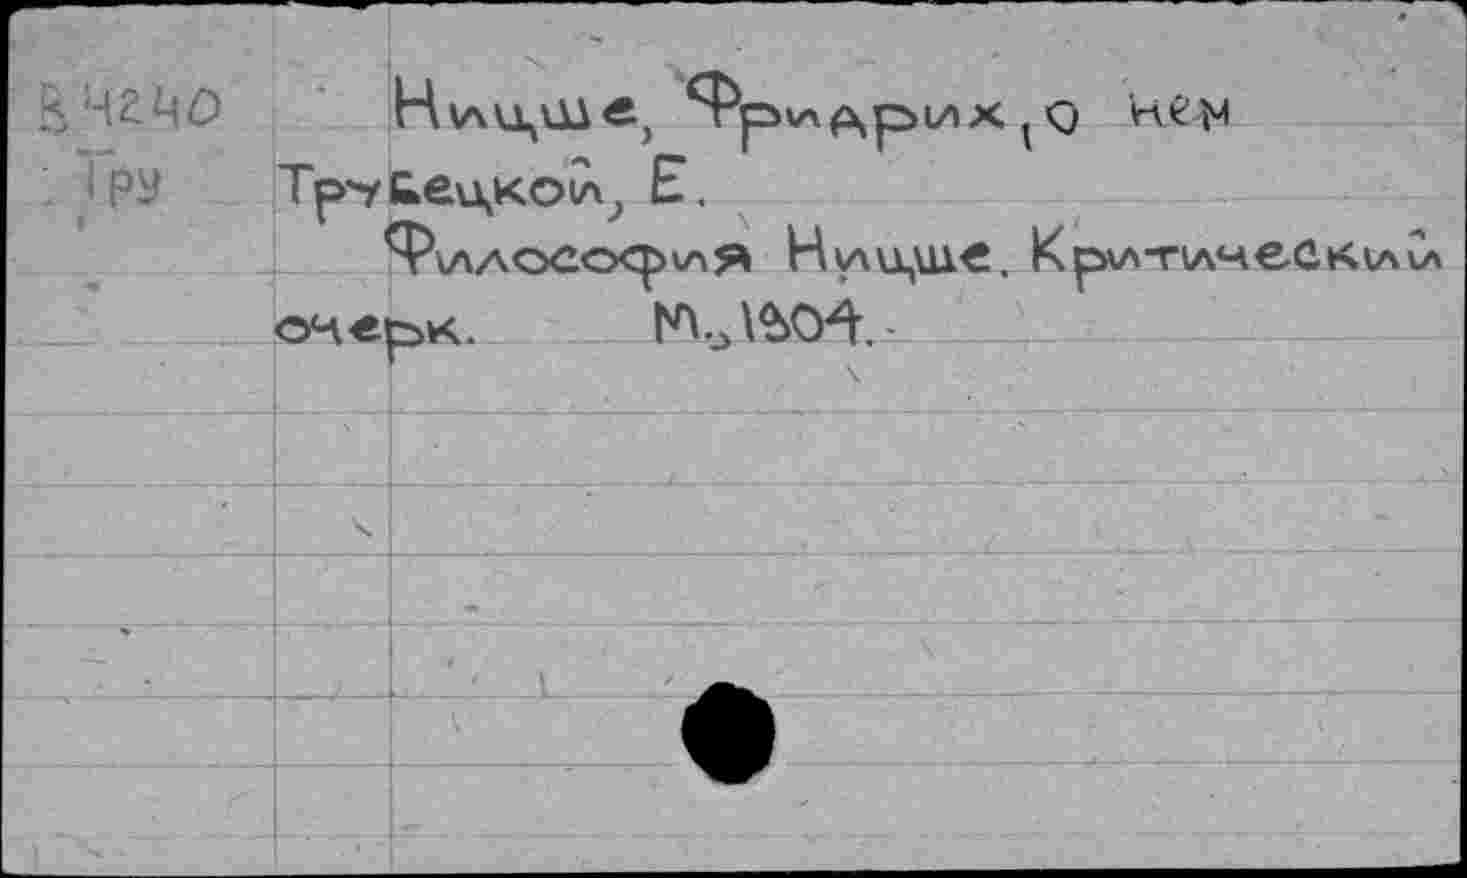 Ницше, Фридрих, о нем
Тру
Трубецкой, Е.
Философия Ницше. Критический
очерк. М., 1904.